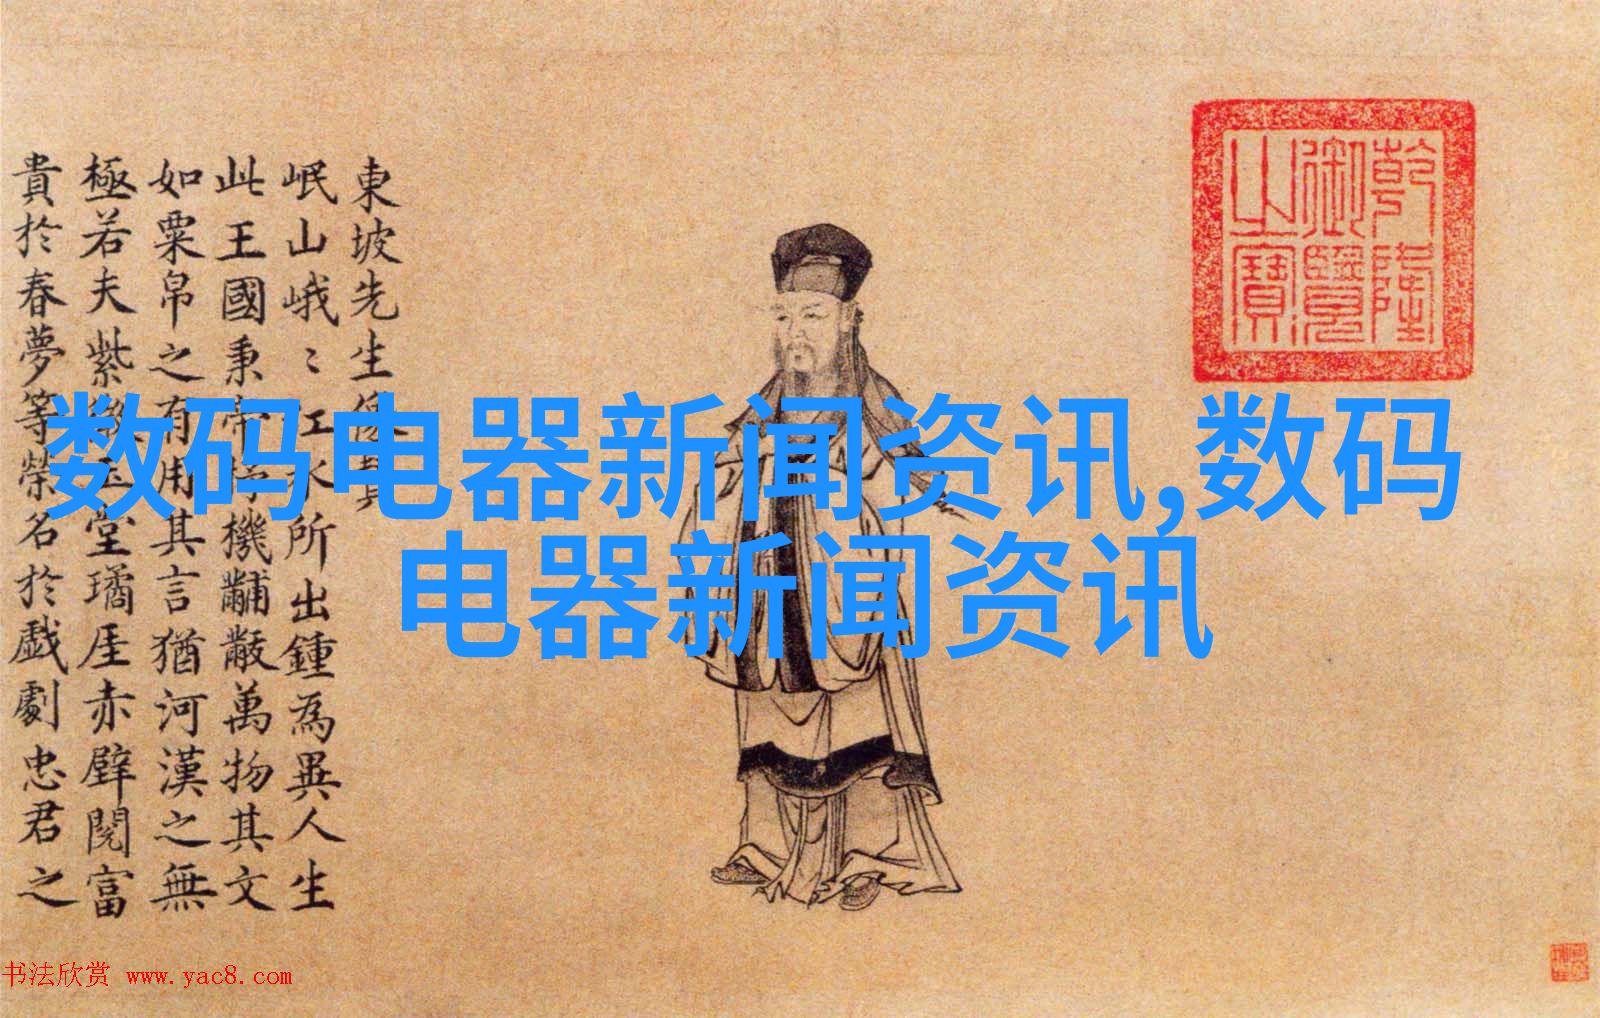 東坡先生像其
岷山峨〻江水所出鍾為異人生
此王國秉帝杼機黼黻萬物其文
如粟帛之有用其言猶河漢之無
極若夫紫微玉堂瓊厓赤壁閱富
貴於春夢等榮名於戲劇忠君之
乾隆
御覽
之寶
数码电器新闻资讯,数码
电器新闻资讯
书法欣赏 www.yac8.com